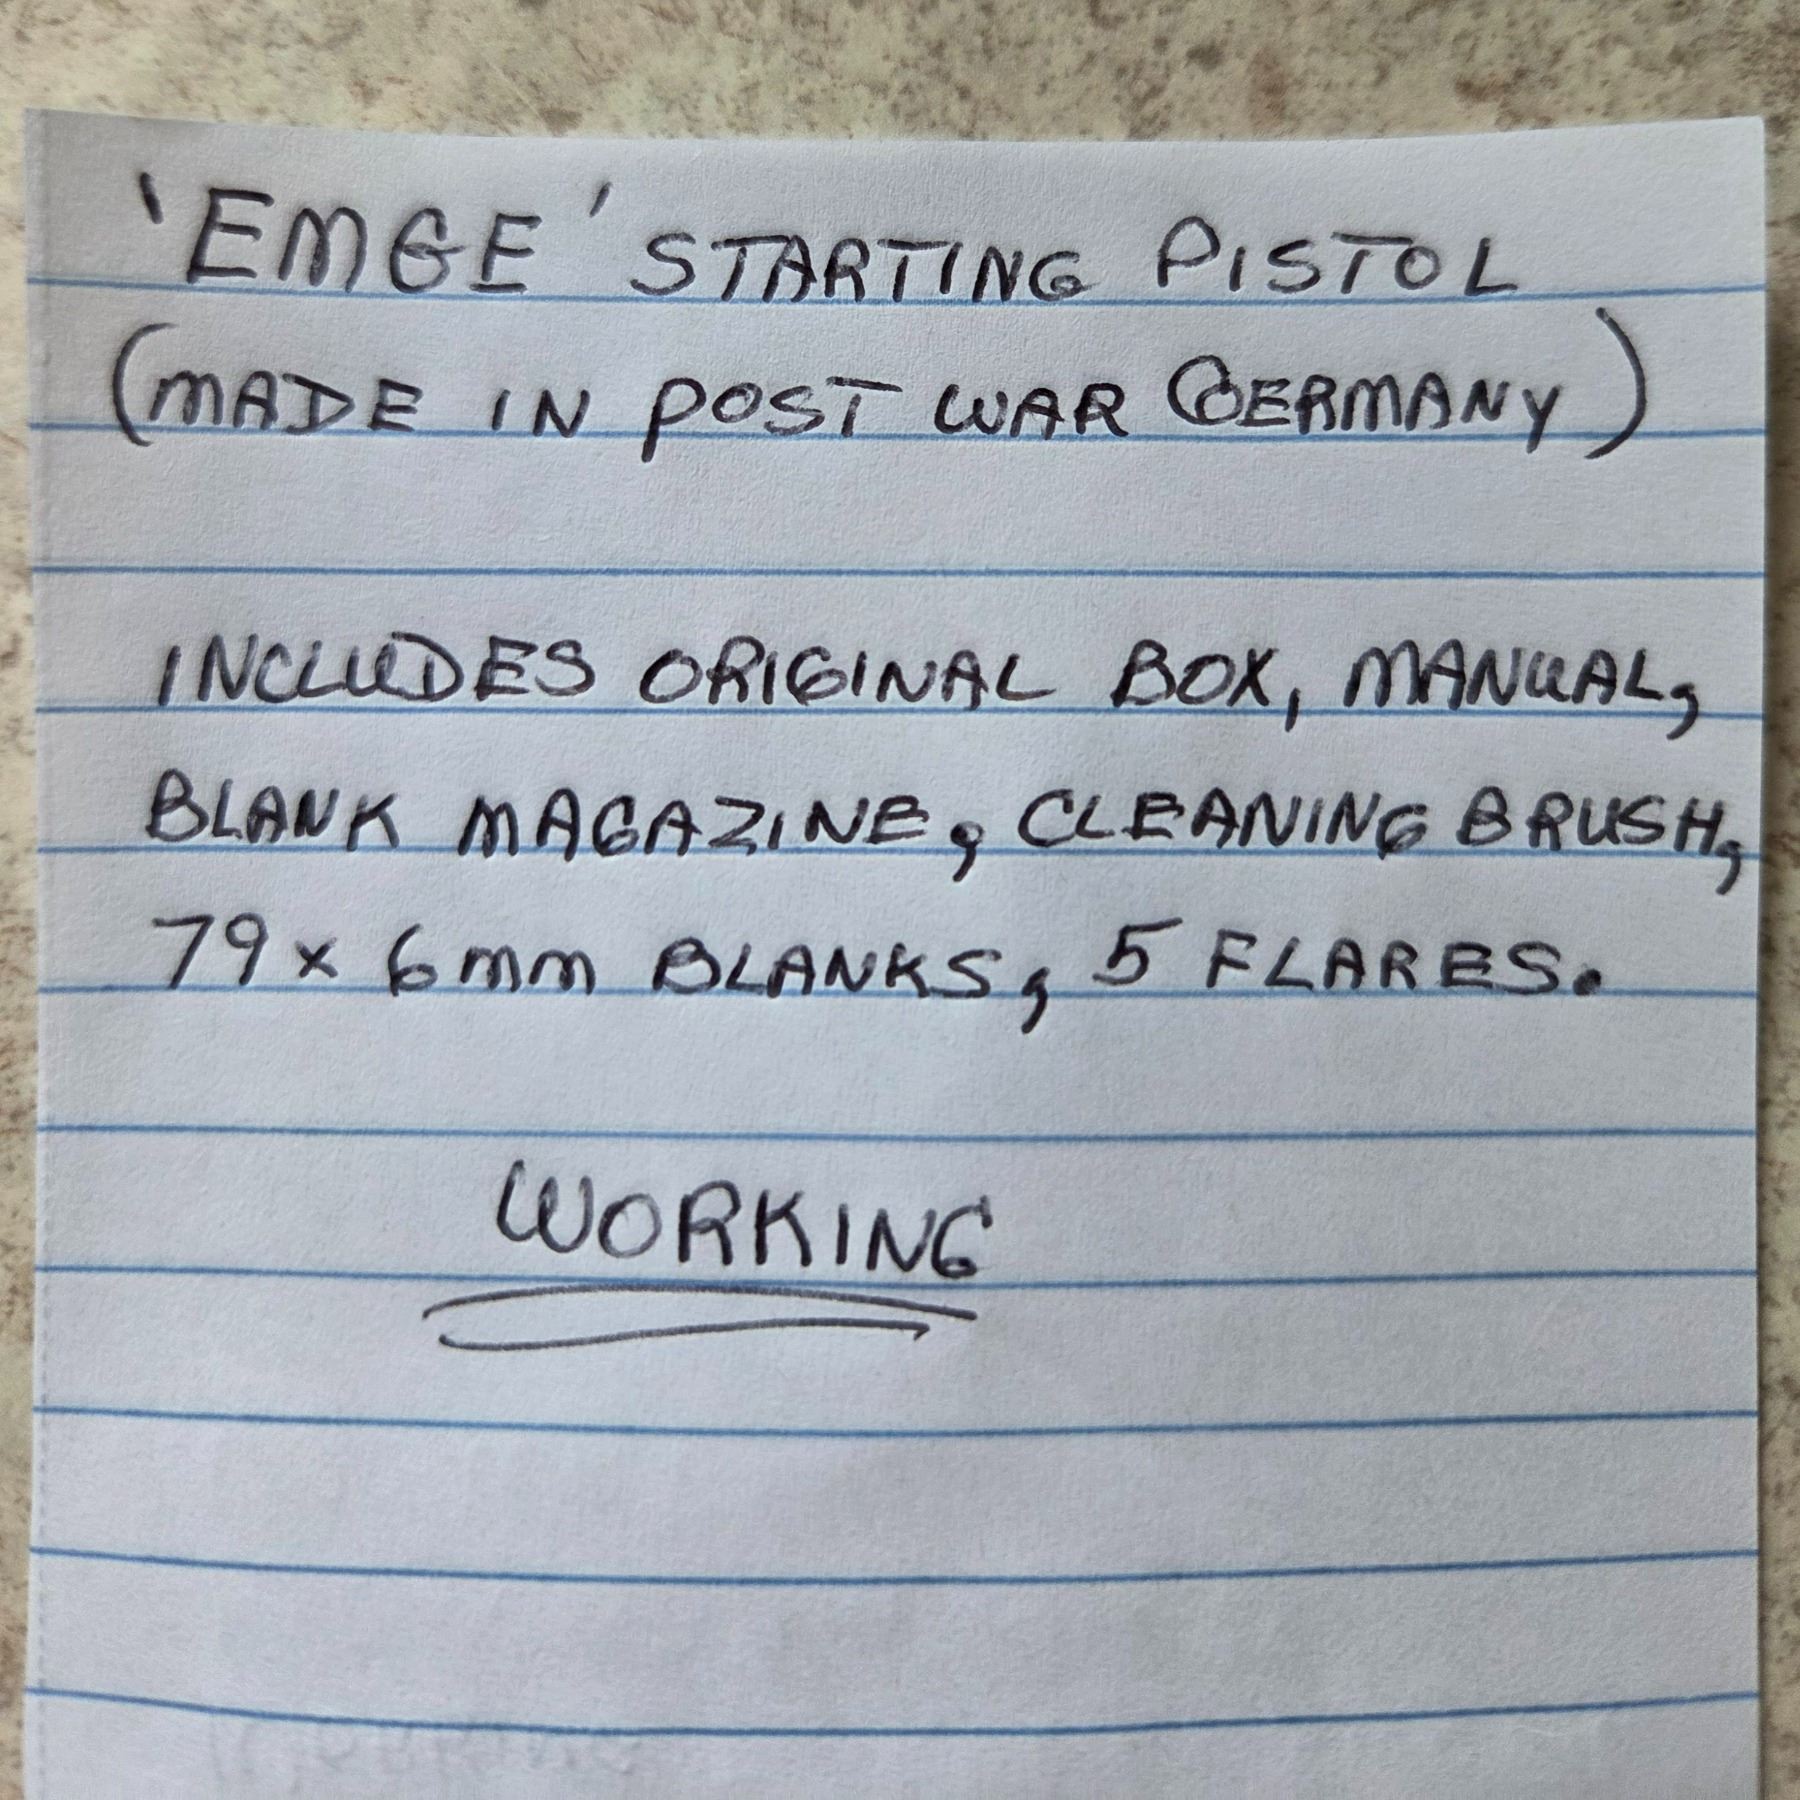 'EMGE' STARTING PISTOL
(MADE IN POST WAR GERMANY)
INCLUDES ORIGINAL BOX, MANUAL,
BLANK MAGAZINE, CLEANING BRUSH,
79 x 6mm BLANKS, 5 FLARES.
WORKING